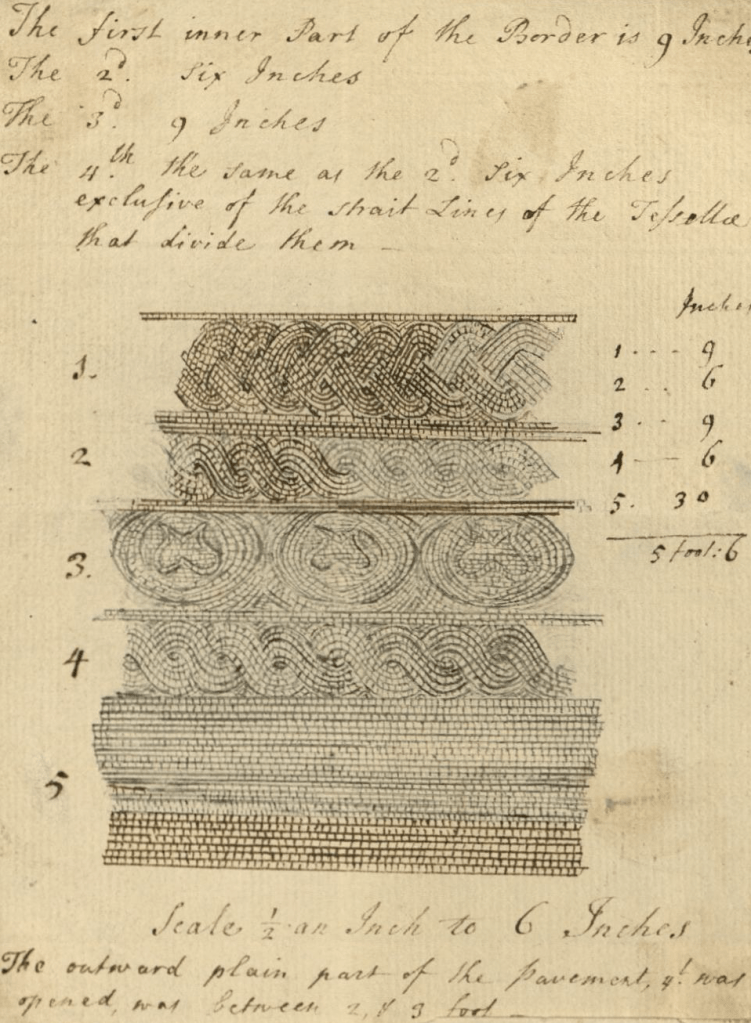 The first inner Part of the Border is 9 Inche
The 2d. Six Inches
The 3d. 9 Inches
The 4.th the same as the 2d. Six Inches
exclusive of the strait Lines of the Tessellæ
that divide them —
Inches
1 - - - 9
2 - - - 6
3 - - - 9
4 — 6
5. 30
5 foot: 6
1.
2
3.
4
5
Scale ½ an Inch to 6 Inches
The outward plain part of the Pavement, yt. was
opened, was between 2, & 3 foot —